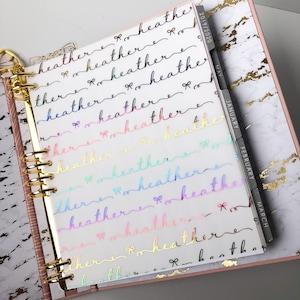 heather
heather heather
heather heather
heather heather
heather heather
heather heather
heather heather
heather heather
heather heather
heather heather
heather
heather heather
heather
JANUARY
FEBRUARY
MARCH